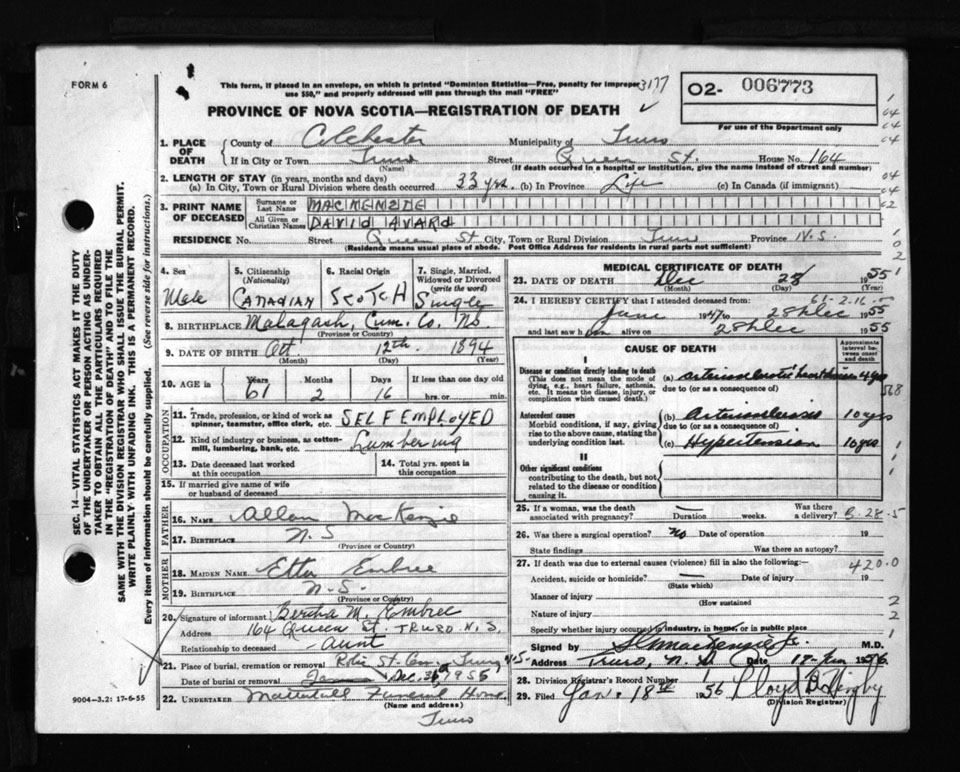 FORM 6
This form, if placed in an envelope, on which is printed "Dominion Statistics—Free, penalty for improper
use $50," and properly addressed will pass through the mail "FREE"
3177
O2- 006773
For use of the Department only
PROVINCE OF NOVA SCOTIA—REGISTRATION OF DEATH
1. PLACE OF DEATH County of Colchester Municipality of Truro
If in City or Town Truro Street Queen St. House No. 164
(Name) (If death occurred in a hospital or institution, give the name instead of street and number)
2. LENGTH OF STAY (in years, months and days)
(a) In City, Town or Rural Division where death occurred 33 yrs. (b) in Province Life (c) In Canada (if immigrant)
3. PRINT NAME OF DECEASED Surname or Last Name MACKENZIE
All Given or Christian Names DAVID AVARD
RESIDENCE No. Street Queen St City, Town or Rural Division Truro Province N.S.
(Residence means usual place of abode. Post Office Address for residents in rural parts not sufficient)
4. Sex Male
5. Citizenship (Nationality) CANADIAN
6. Racial Origin SCOTCH
7. Single, Married, Widowed or Divorced (write the word) Single
8. BIRTHPLACE Malagash, Cum. Co. NS.
(Province or Country)
9. DATE OF BIRTH Oct. 12th 1894
(Month) (Day) (Year)
10. AGE in Years Months Days If less than one day old
61 2 16 hrs. or min.
OCCUPATION
11. Trade, profession, or kind of work as spinner, teamster, office clerk, etc. SELF EMPLOYED
12. Kind of industry or business, as cotton-mill, lumbering, bank, etc. Lumbering
13. Date deceased last worked at this occupation
14. Total yrs. spent in this occupation
15. If married give name of wife or husband of deceased
FATHER
16. NAME Allan MacKenzie
17. BIRTHPLACE N.S
(Province or Country)
MOTHER
18. MAIDEN NAME Etta Embree
19. BIRTHPLACE N.S.
(Province or Country)
20. Signature of informant Bertha M. Embree
Address 164 Queen St. TRURO N.S.
Relationship to deceased Aunt
21. Place of burial, cremation or removal Robie St. Cem. Truro N.S
Date of burial or removal Dec. 1955
22. UNDERTAKER Mattatall Funeral Home
(Name and address)
Truro
9004-3.2: 17-6-55
MEDICAL CERTIFICATE OF DEATH
23. DATE OF DEATH Dec 28 1955
(Month) (Day)
61-2-16
24. I HEREBY CERTIFY that I attended deceased from:
June 1947 to 28th Dec 1955
and last saw him alive on 28th Dec 1955
CAUSE OF DEATH
Approximate interval between onset and death
I
Disease or condition directly leading to death
(This does not mean the mode of dying, e.g., heart failure, asthenia, etc. It means the disease, injury, or complication which caused death.)
(a) arteriosclerotic heart disease 4 yrs
due to (or as a consequence of)
Antecedent causes
Morbid conditions, if any, giving rise to the above cause, stating the underlying condition last.
(b) Arteriosclerosis 10 yrs
due to (or as a consequence of)
(c) Hypertension 10 yrs
II
Other significant conditions
contributing to the death, but not related to the disease or condition causing it.
25. If a woman, was the death associated with pregnancy? Duration weeks. Was there a delivery?
B-28-5
26. Was there a surgical operation? No Date of operation 19
State findings Was there an autopsy?
27. If death was due to external causes (violence) fill in also the following:—
420.0
Accident, suicide or homicide? Date of injury 19
(State which)
Manner of injury
(How sustained
Nature of injury
Specify whether injury occurred in industry, in home, or in public place
Signed by M.D.
Address Truro, N.S. Date 1956
28. Division Registrar's Record Number
29. Filed Jan. 18th 1956 Lloyd
(Division Registrar)
SEC. 14—VITAL STATISTICS ACT MAKES IT THE DUTY
OF THE UNDERTAKER OR PERSON ACTING AS UNDER-
TAKER TO OBTAIN ALL THE PARTICULARS REQUIRED
IN THE "REGISTRATION OF DEATH" AND TO FILE THE
SAME WITH THE DIVISION REGISTRAR WHO SHALL ISSUE THE BURIAL PERMIT.
WRITE PLAINLY WITH UNFADING INK. THIS IS A PERMANENT RECORD.
Every item of information should be carefully supplied. (See reverse side for instructions.)